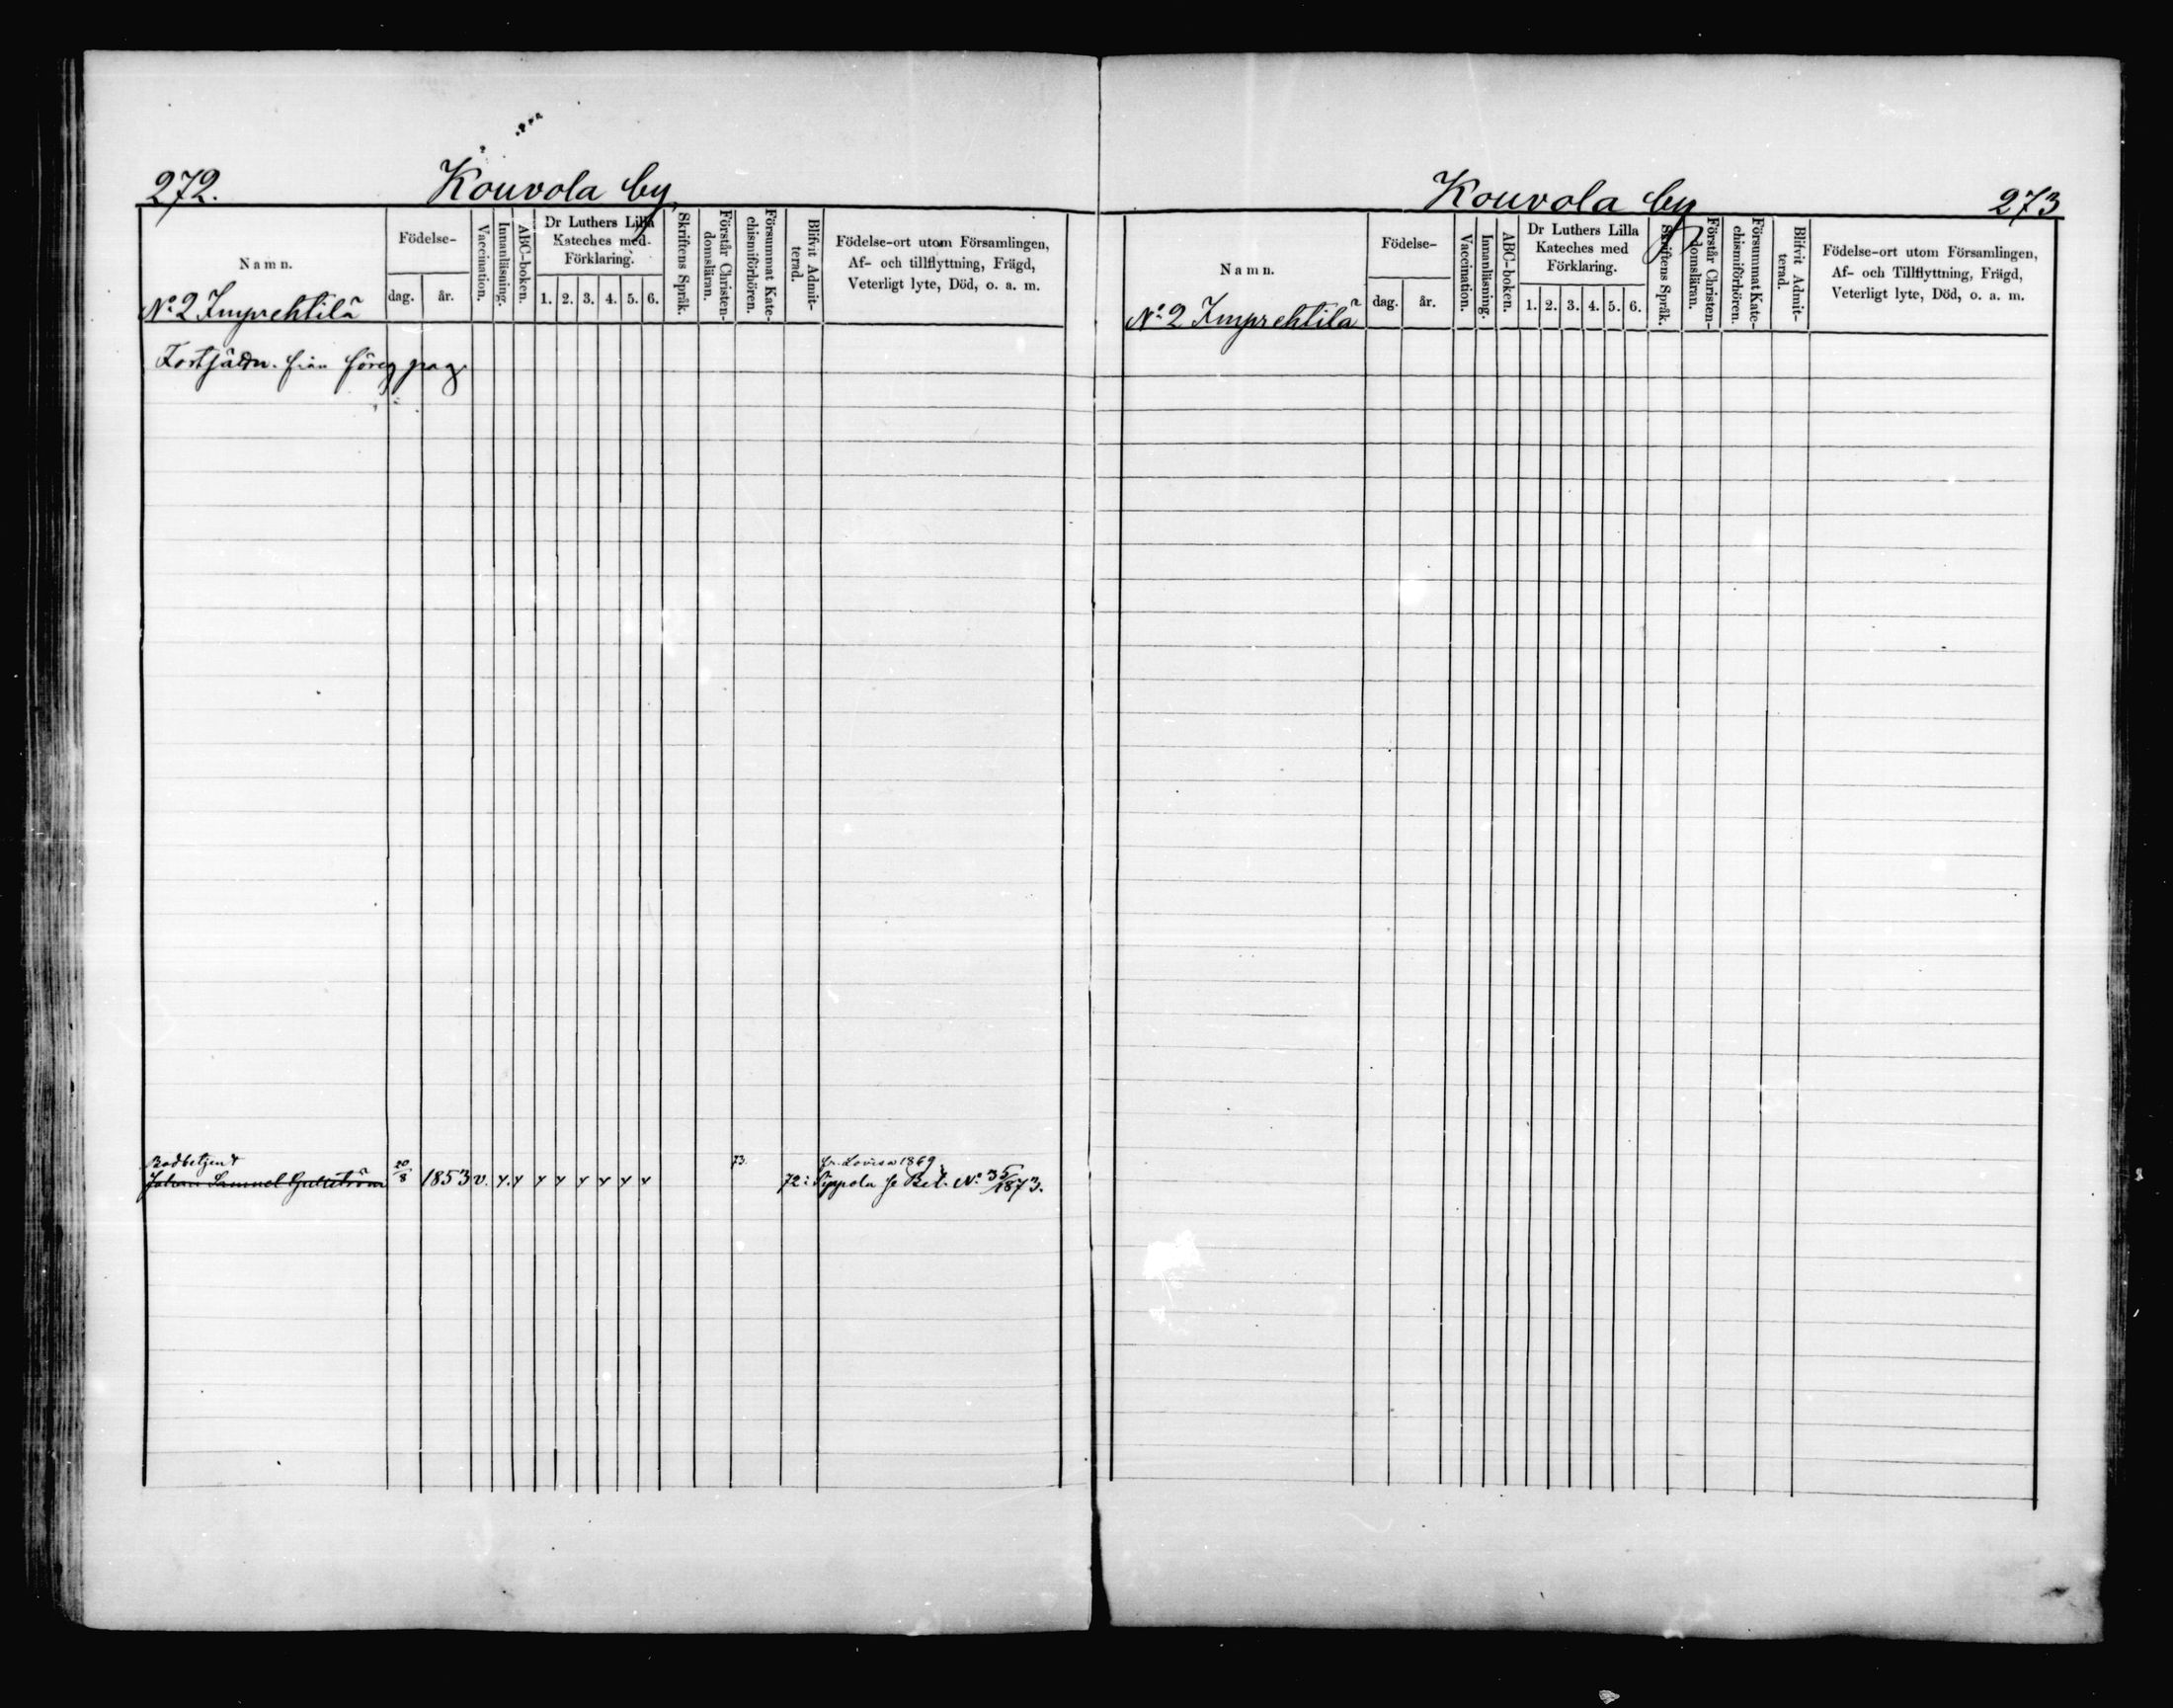 272.
Kouvola by
Namn.
Födelse-
dag.
år.
Vaccination.
Innanläsning.
ABC-boken.
Dr Luthers Lilla
Kateches med
Förklaring.
1. 2. 3. 4. 5. 6.
Skriftens Språk.
Förstår Christen-
domsläran.
Försummat Kate-
chismiförhören.
Blifvit Admit-
terad.
Födelse-ort utom Församlingen,
Af- och tillflyttning, Frägd,
Veterligt lyte, Död, o. a. m.
No 2 Imprehtilä
Fortsättn. från föreg pag.
Bodbetjent
Johan Samuel 20/8 1853 v. 73 72: fr. Lovisa 1869
Sippola se Bet. No 35/1873.
Kouvola by
273
Namn.
Födelse-
dag.
år.
Vaccination.
Innanläsning.
ABC-boken.
Dr Luthers Lilla
Kateches med
Förklaring.
1. 2. 3. 4. 5. 6.
Skriftens Språk.
Förstår Christen-
domsläran.
Försummat Kate-
chismiförhören.
Blifvit Admit-
terad.
Födelse-ort utom Församlingen,
Af- och Tillflyttning, Frägd,
Veterligt lyte, Död, o. a. m.
No 2 Imprehtilä